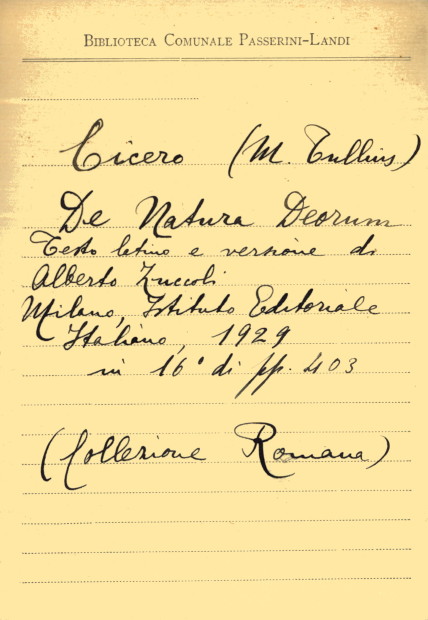 BIBLIOTECA COMUNALE PASSERINI-LANDI
Cicero (M. Tullius)
De Natura Deorum
Testo latino e versione di
Alberto Zuccoli
Milano, Istituto Editoriale
Italiano, 1929
in 16° di pp. 403
(Collezione Romana)